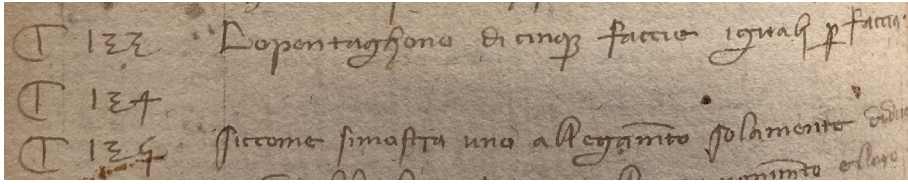 ¶ 133 Lopentaghono di cinqꝫ faccie iguali ꝑ faccia.
¶ 134
¶ 135 Siccome simostra uno alleggam̅to solamente didue